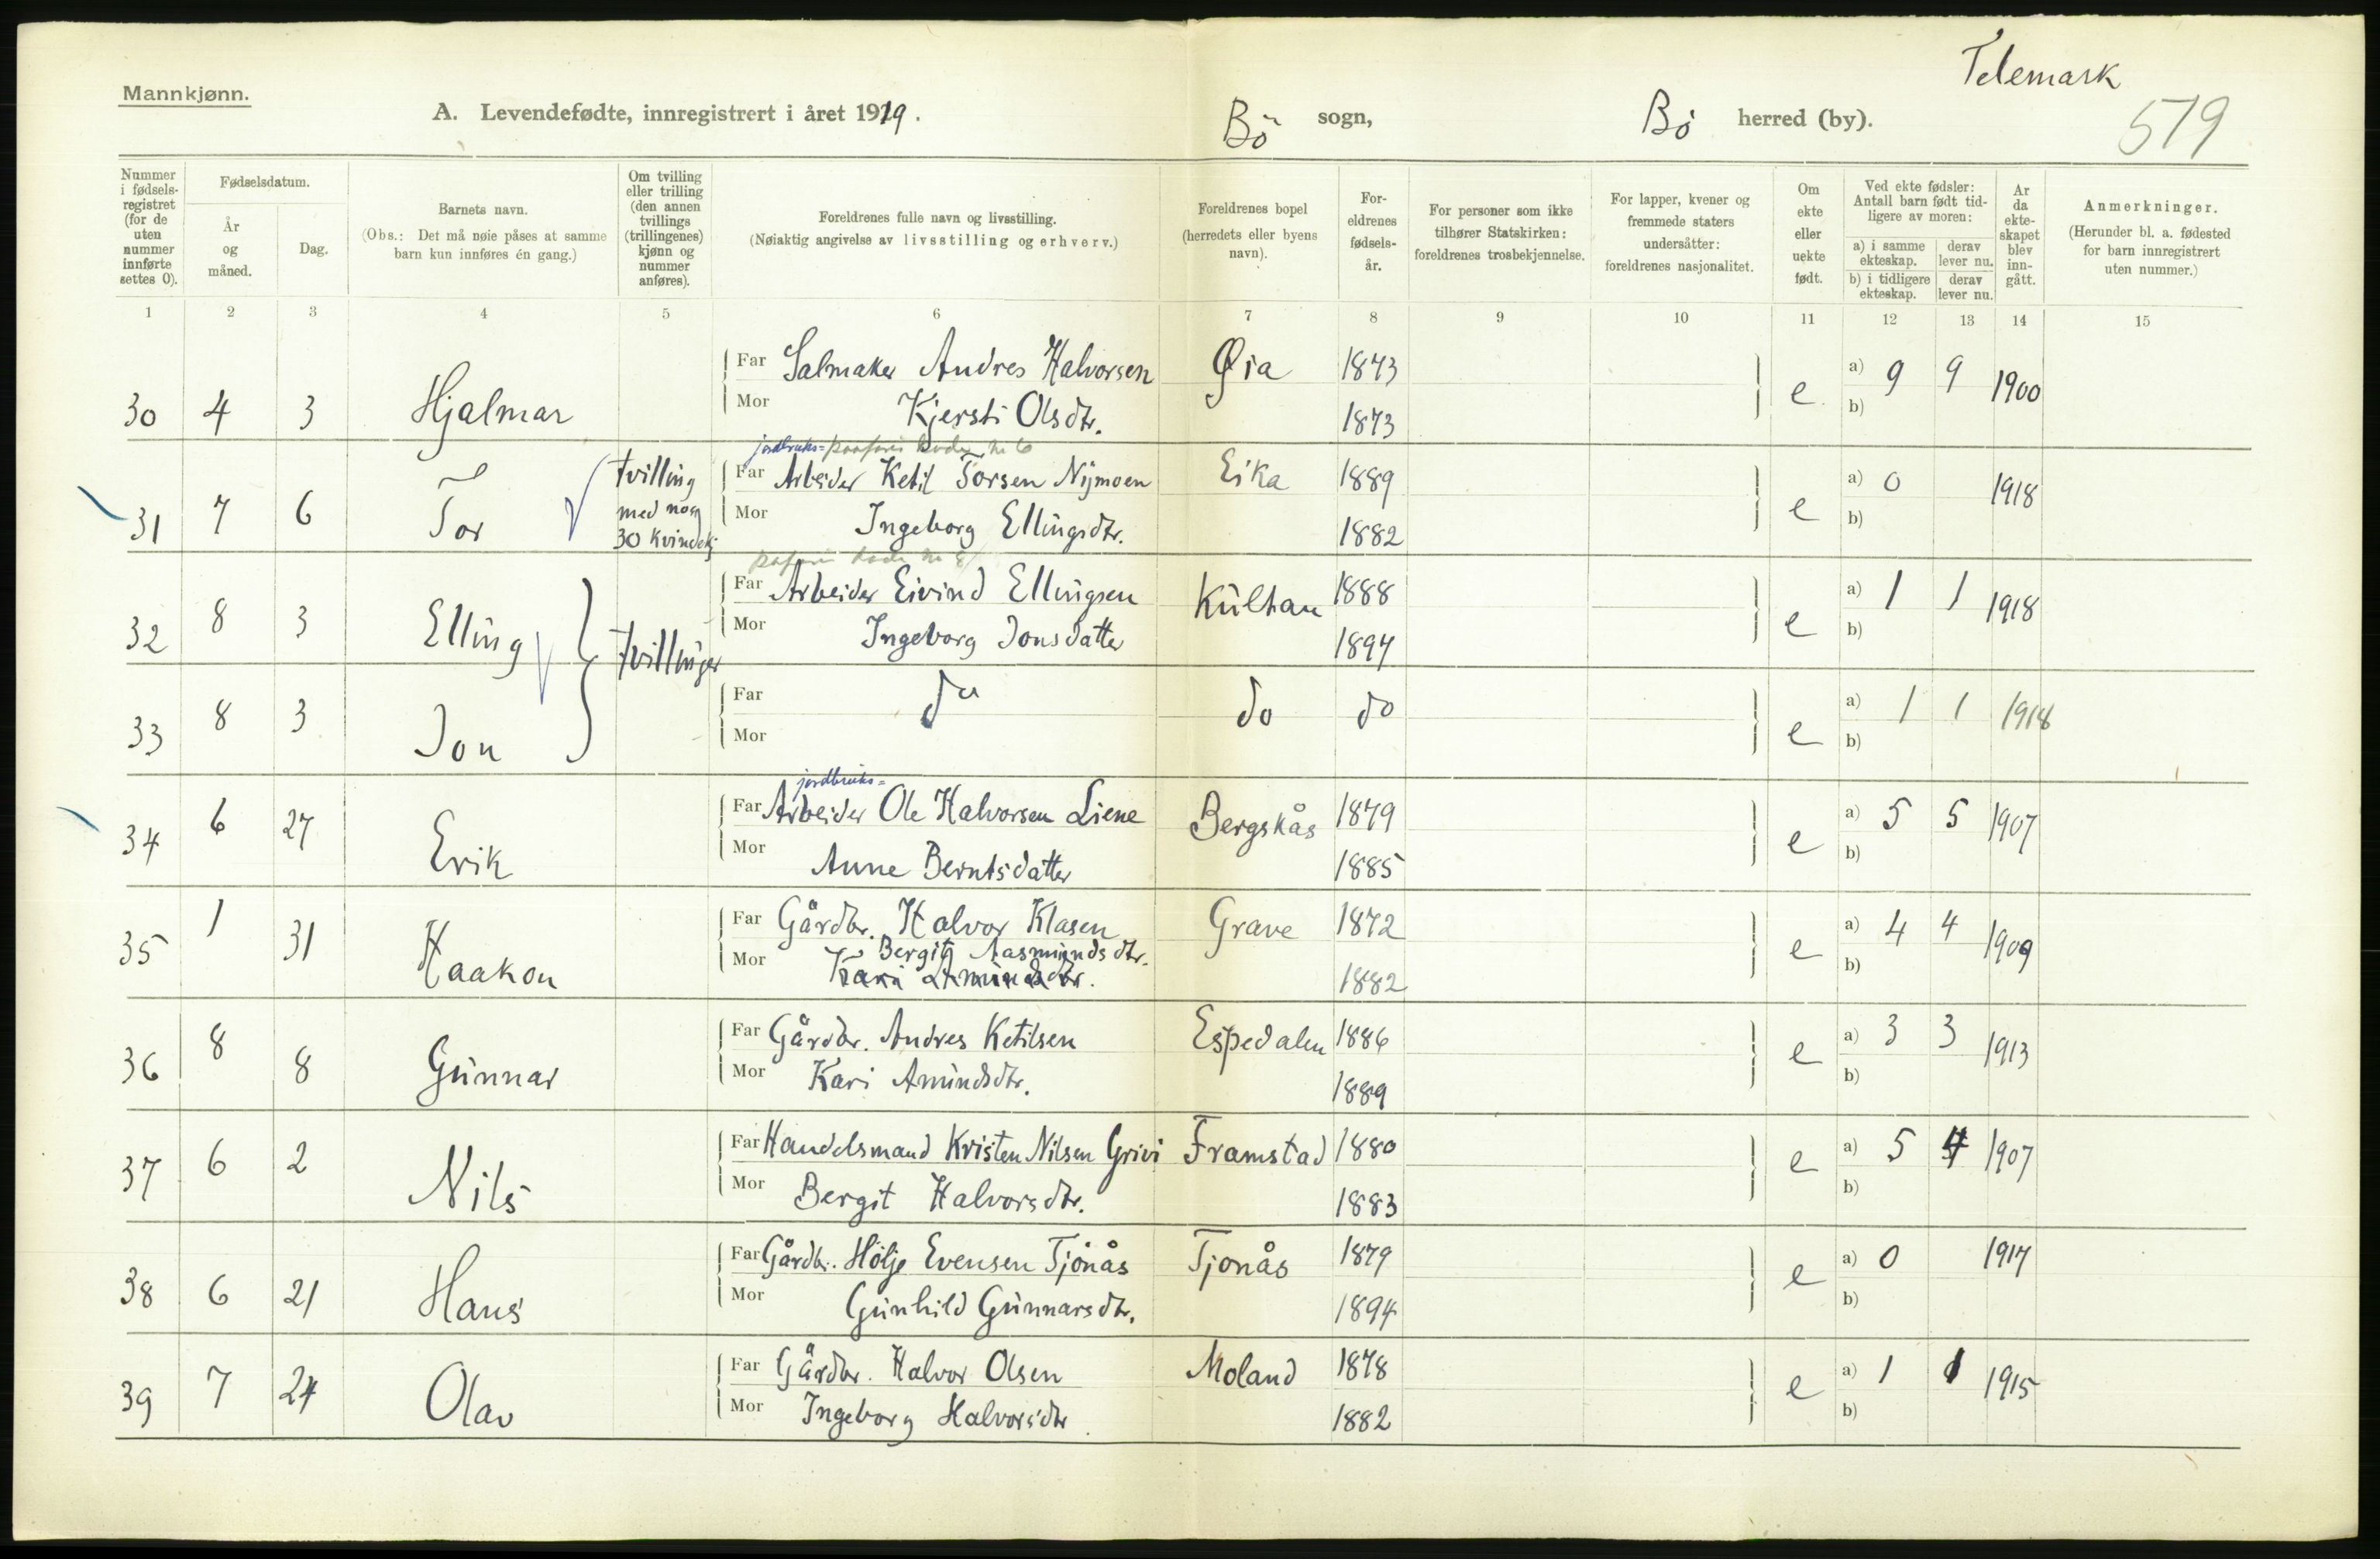 Telemark
Mannkjønn.
A. Levendefødte, innregistrert i året 1919. Bö sogn, Bö herred (by). 519
Nummer i fødsels-registret (for de uten nummer innførte settes 0).
Fødselsdatum.
År og måned.
Dag.
Barnets navn.
(Obs.: Det må nøie påses at samme barn kun innføres én gang.)
Om tvilling eller trilling (den annen tvillings (trillingenes) kjønn og nummer anføres).
Foreldrenes fulle navn og livsstilling.
(Nøiaktig angivelse av livsstilling og erhverv.)
Foreldrenes bopel (herredets eller byens navn).
For-eldrenes fødsels-år.
For personer som ikke tilhører Statskirken: foreldrenes trosbekjennelse.
For lapper, kvener og fremmede staters undersåtter: foreldrenes nasjonalitet.
Om ekte eller uekte født.
Ved ekte fødsler: Antall barn født tid-ligere av moren:
a) i samme ekteskap. derav lever nu.
b) i tidligere ekteskap. derav lever nu.
Ar da ekte-skapet blev inn-gått.
Anmerkninger.
(Herunder bl. a. fødested for barn innregistrert uten nummer.)
1 2 3 4 5 6 7 8 9 10 11 12 13 14 15
Far Salmaker Andres Halvorsen Øia 1873 a) 9 9 1900
30 4 3 Hjalmar Mor Kjersti Olsdtr. 1873 e b)
jordbruks=
tvilling Far Arbeider Ketil Torsen Nymoen Eika 1889 a) 0 1918
31 7 6 Tor med no 30 kvindekj Mor Ingeborg Ellingsdtr. 1882 e b)
Far Arbeider Eivind Ellingsen Kulhan 1888 a) 1 1 1918
32 8 3 Elling tvillinger Mor Ingeborg Jonsdatter 1897 e b)
Far do do do a) 1 1 1918
33 8 3 Jon Mor e b)
jordbruks=
Far Arbeider Ole Halvorsen Liene Bergskås 1879 a) 5 5 1907
34 6 27 Erik Mor Anne Berntsdatter 1885 e b)
Far Gårdbr. Halvor Klasen Grave 1872 a) 4 4 1909
35 1 31 Haakon Mor Bergit Aasmundsdtr. 1882 e b)
Kari Amundsdtr.
Far Gårdbr. Andres Ketilsen Espedalen 1886 a) 3 3 1913
36 8 8 Gunnar Mor Kari Amundsdtr. 1889 e b)
Far Handelsmand Kristen Nilsen Grivi Framstad 1880 a) 5 4 1907
37 6 2 Nils Mor Bergit Halvorsdtr. 1883 e b)
Far Gårdbr. Hölje Evensen Tjönås Tjonås 1879 a) 0 1917
38 6 21 Hans Mor Gunhild Gunnarsdtr. 1894 e b)
Far Gårdbr. Halvor Olsen Moland 1878 a) 1 1 1915
39 7 24 Olav Mor Ingeborg Halvorsdtr 1882 e b)